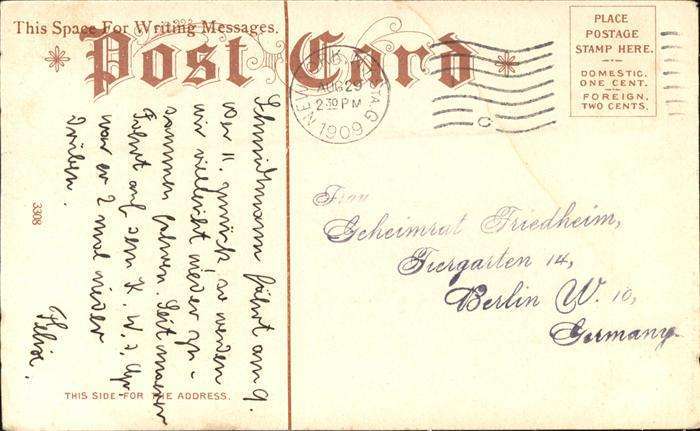 This Space For Writing Messages.
Post Card
PLACE
POSTAGE
STAMP HERE.
DOMESTIC.
ONE CENT.
FOREIGN,
TWO CENTS.
NEW YORK, N.Y.
AUG 29
2 30 PM
1909
G
C
Schmidtmann fährt am 9.
oder 11. zurück, so werden
wir vielleicht wieder zu-
sammen fahren. Seit unserer
Fahrt auf dem K. W. d. Gr.
war er 2 mal wieder
drüben.
Felix.
Frau
Geheimrat Friedheim,
Tiergarten 14,
Berlin W. 10,
Germany.
3308
THIS SIDE FOR THE ADDRESS.